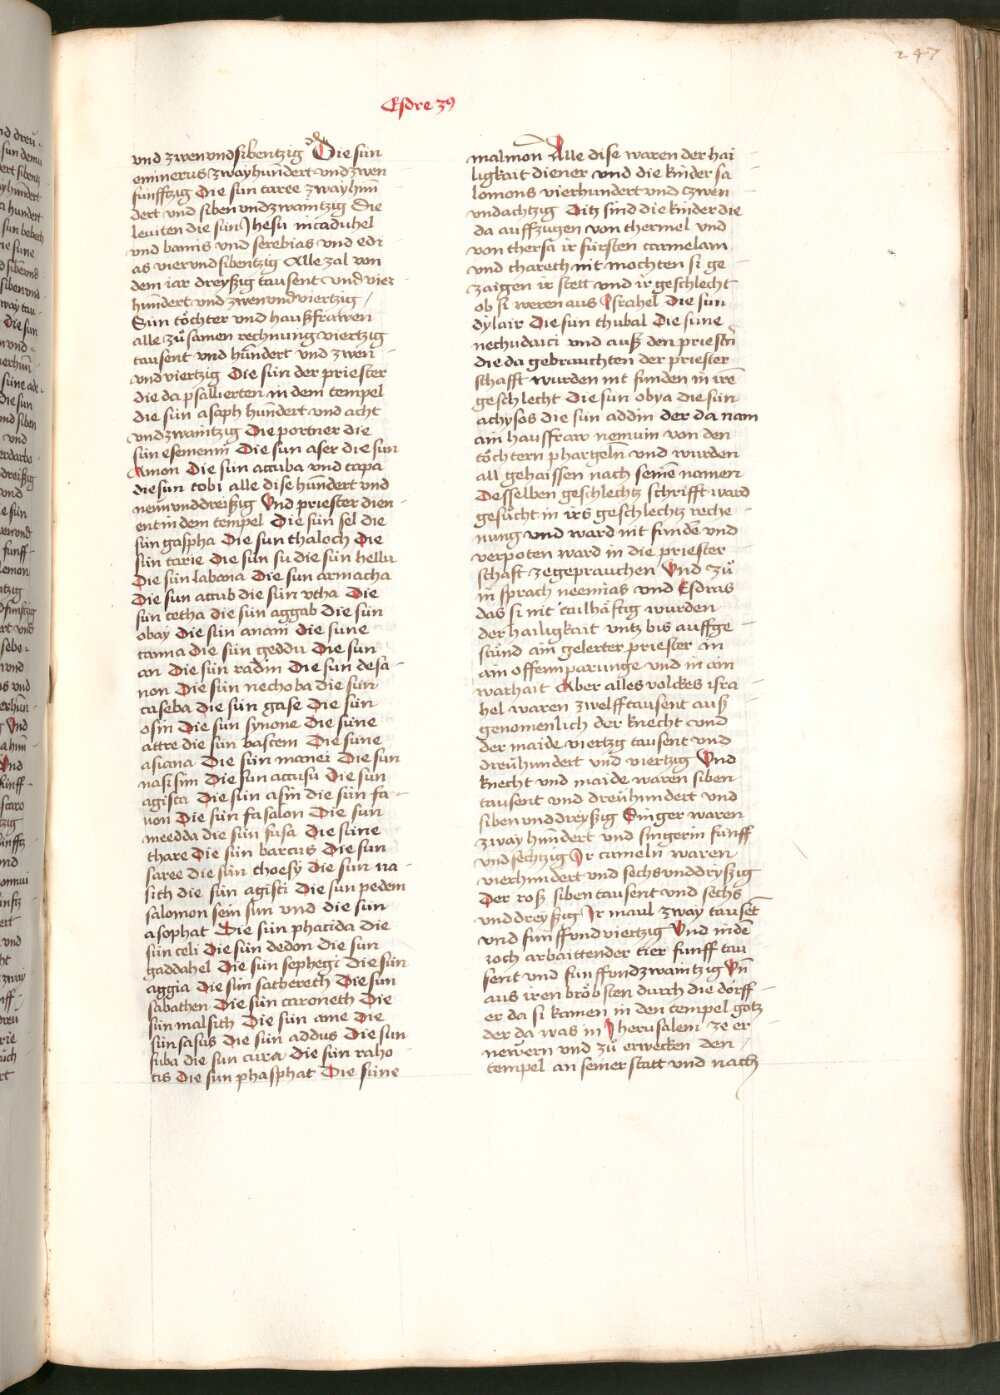 247
Esdre 39
vnd zwenvndsibentzig Die sün
eminerus zwayhundert vnd zwen
fünfftzig Die sün caree zwayhun
dert vnd siben vndzwaintzig Die
leuiten die sün Jhesu in caduhel
vnd bamis vnd serebias vnd edi
as viervndsibentzig Alle zal von
dem iar dreyßig tausent vnd vier
hundert vnd zwenvndviertzig /
Sün töchter vnd haußfrawen
alle zů samen rechnung viertzig
tausent vnd hundert vnd zwen
vnd viertzig Die sün der priester
die da psallierten in dem tempel
die sün asaph hundert vnd acht
vndzwaintzig Die portner die
sün esemenni Die sun aser die sun
Amon Die sün accuba vnd copa
die sun tobi alle dise hundert vnd
neun vnddreißig Vnd priester dien
ent in dem tempel Die sün sel die
sün gaspha Die sun thaloch Die
sün carie Die sün su die sün hellu
Die sün labana Die sun armacha
Die sun accub die sün vtha Die
sun cetha die sün aggab die sün
obay die sün anani die süne
canna die sün geddu Die sun
an Die sün radin Die sun desa
non Die sün nechoba die sün
caseba die sün gase Die sün
osin Die sun synone die süne
attre die sün bastem Die süne
asiana Die sün manei Die sun
nasisim Die sun accusu Die sun
agista Die sün asin die sün fa
uon Die sün fasalon Die sun
meedda die sün susa Die süne
thare Die sün barcus Die sun
saree die sün thoesy Die sun na
sith die sün agisti Die sun pedem
salomon sein sun vnd die sün
asophat Die sün phacida die
sün celi Die sün dedon die sun
gaddahel Die sün sephegi die sün
aggia Die sün sathereth Die sun
sabathen Die sün caroneth Die
sün malsith Die sün ame die
sün sasus die sün addus die sun
suba die sun cura die sün raho
tis Die sun phasphat Die süne
malmon Alle dise waren der hai
ligkait diener vnd die kinder sa
lomons vierhundert vnd zwen
vndachtzig Ditz sind die kinder die
da auffzugen von thermel vnd
von thersa ir fürsten carmelam
vnd chareth nit mochten si ge
zaigen ir stett vnd ir geschlecht
ob si weren aus Israhel Die sun
dylair Die sun thubal Die süne
nechudaici vnd auß den priestn̄
die da gebrauchten der priester
schafft wurden nit funden in irē
geschlecht Die sun obya die sün
achysos die sün addin der da nam
ain hausfraw nemuin von den
töchtern phargeln vnd wurden
all gehaissen nach seinē namen
Desselben geschlechtz schrifft ward
gesůcht in irs geschlechtz reche
nung vnd ward nit funden vnd
verpoten ward in die priester
schaft zegeprauchen Vnd zů
in sprach neemias vnd Esdras
das si nit tailhäftig wurden
der hailigkait vntz bis auffge
stůnd ain gelerter priester in
ain offempärunge vnd in ain
warhait Aber alles volckes isra
hel waren zwelfftausent auß
genomenlich der knecht vnd
der maide viertzg tausent vnd
dreühundert vnd viertzig Vnd
knecht vnd maide waren siben
tausent vnd dreühundert vnd
siben vnddreyßig Singer waren
zway hundert vnd singerin funff
vndsechtzig Jr cameln waren
vierhundert vnd sechs vnddryßig
Der roß siben tausent vnd sechs
vnddreyßig Jr maul zway tausēt
vnd funffvndviertzig Vnd in dē
zoch arbaittender tier funff tau
sent vnd funffvndzwaintzig Vn̄
aus iren bröbsten durch die dörff
er da si kamen in den tempel gotz
der da was in Jherusalem ze er
newern vnd zů erwecken den
tempel an seiner statt vnd nach